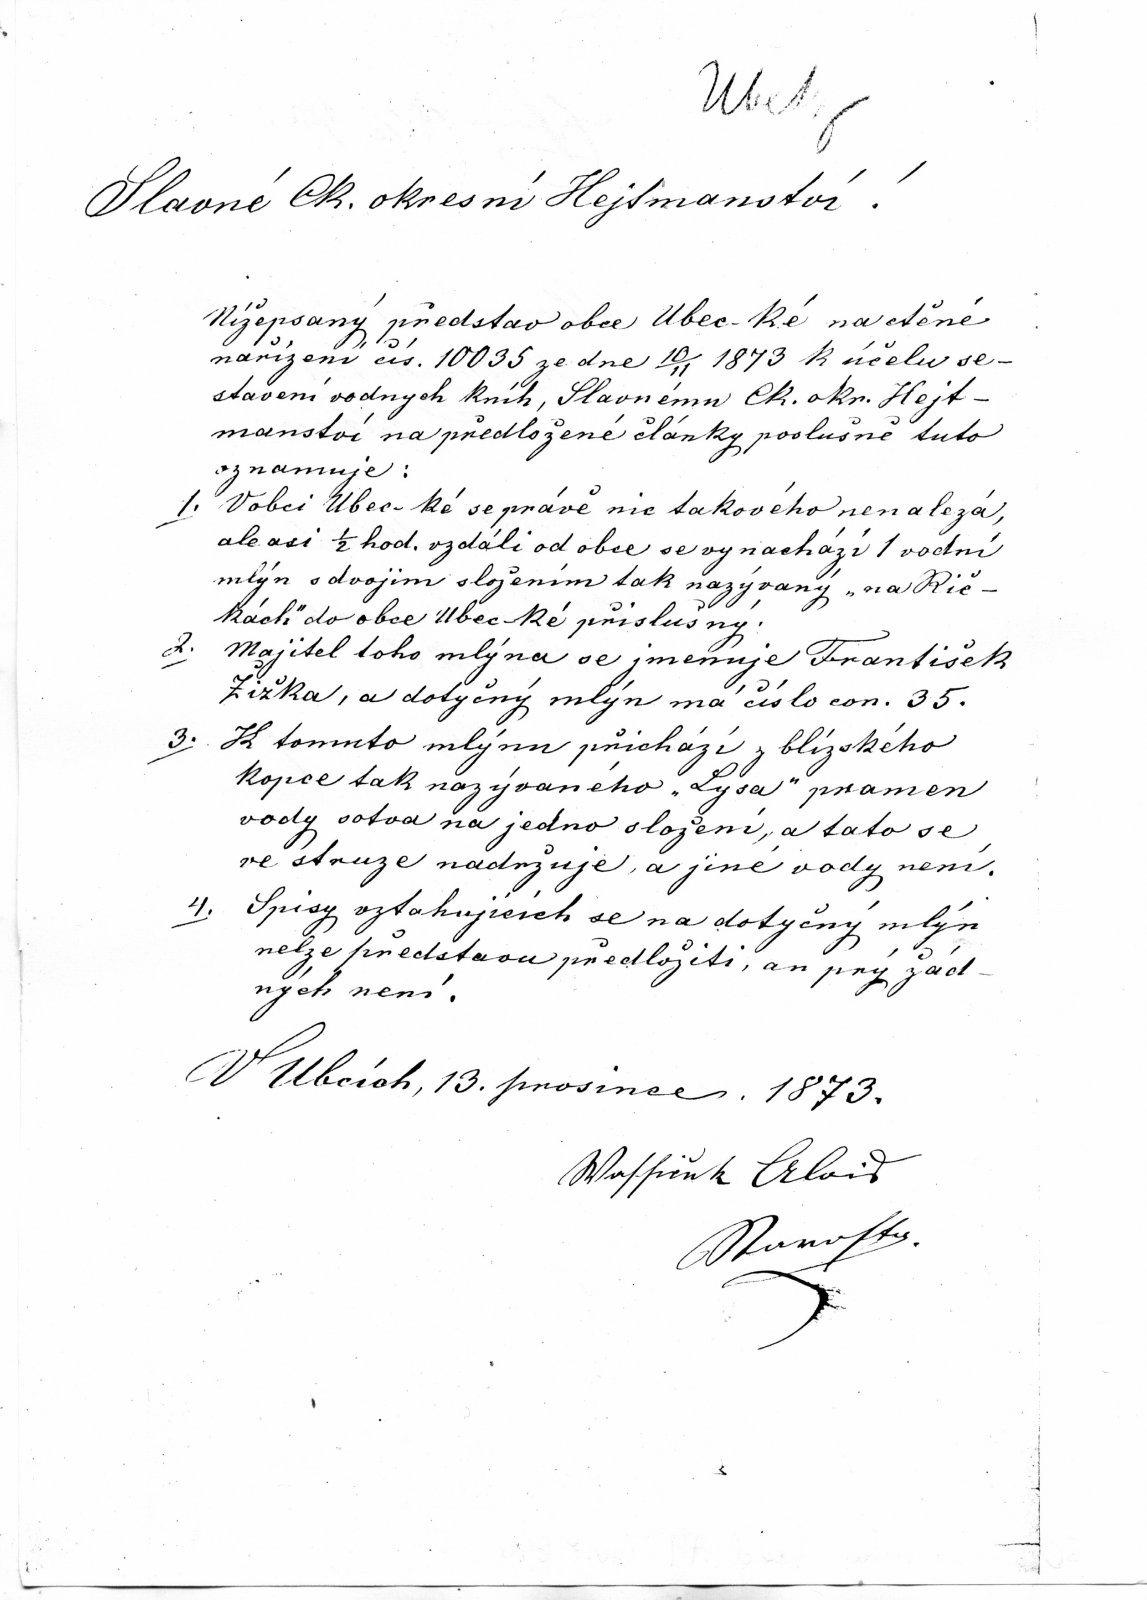 Ubely
Slavné Ck. okresní Hejtmanství!
Nížepsaný představ obce Ubec-ké na ctěné
nařízení čís. 10035 ze dne 10/11 1873 k účelu se-
stavení vodnych knih, Slavnému Ck. okr. Hejt-
manství na předložené články poslušně tuto
oznamuje:
1. V obci Ubec-ké se právě nic takového nenalezá,
ale asi ½ hod. vzdáli od obce se vynachází 1 vodní
mlýn s dvojim složením tak nazývaný „na Rič-
kách" do obce Ubec-ké přislušný.
2. Majitel toho mlýna se jmenuje František
Žižka, a dotyčný mlýn má číslo con. 35.
3. K tomuto mlýnu přichází z blízského
kopce tak nazývaného „Lysa" pramen
vody sotva na jedno složení, a tato se
ve struze nadržuje, a jiné vody není.
4. Spisy vztahujících se na dotyčný mlýn
nelze představu předložiti, an prý žád-
ných není.
V Ubcích, 13. prosince. 1873.
Alois
Starosta.